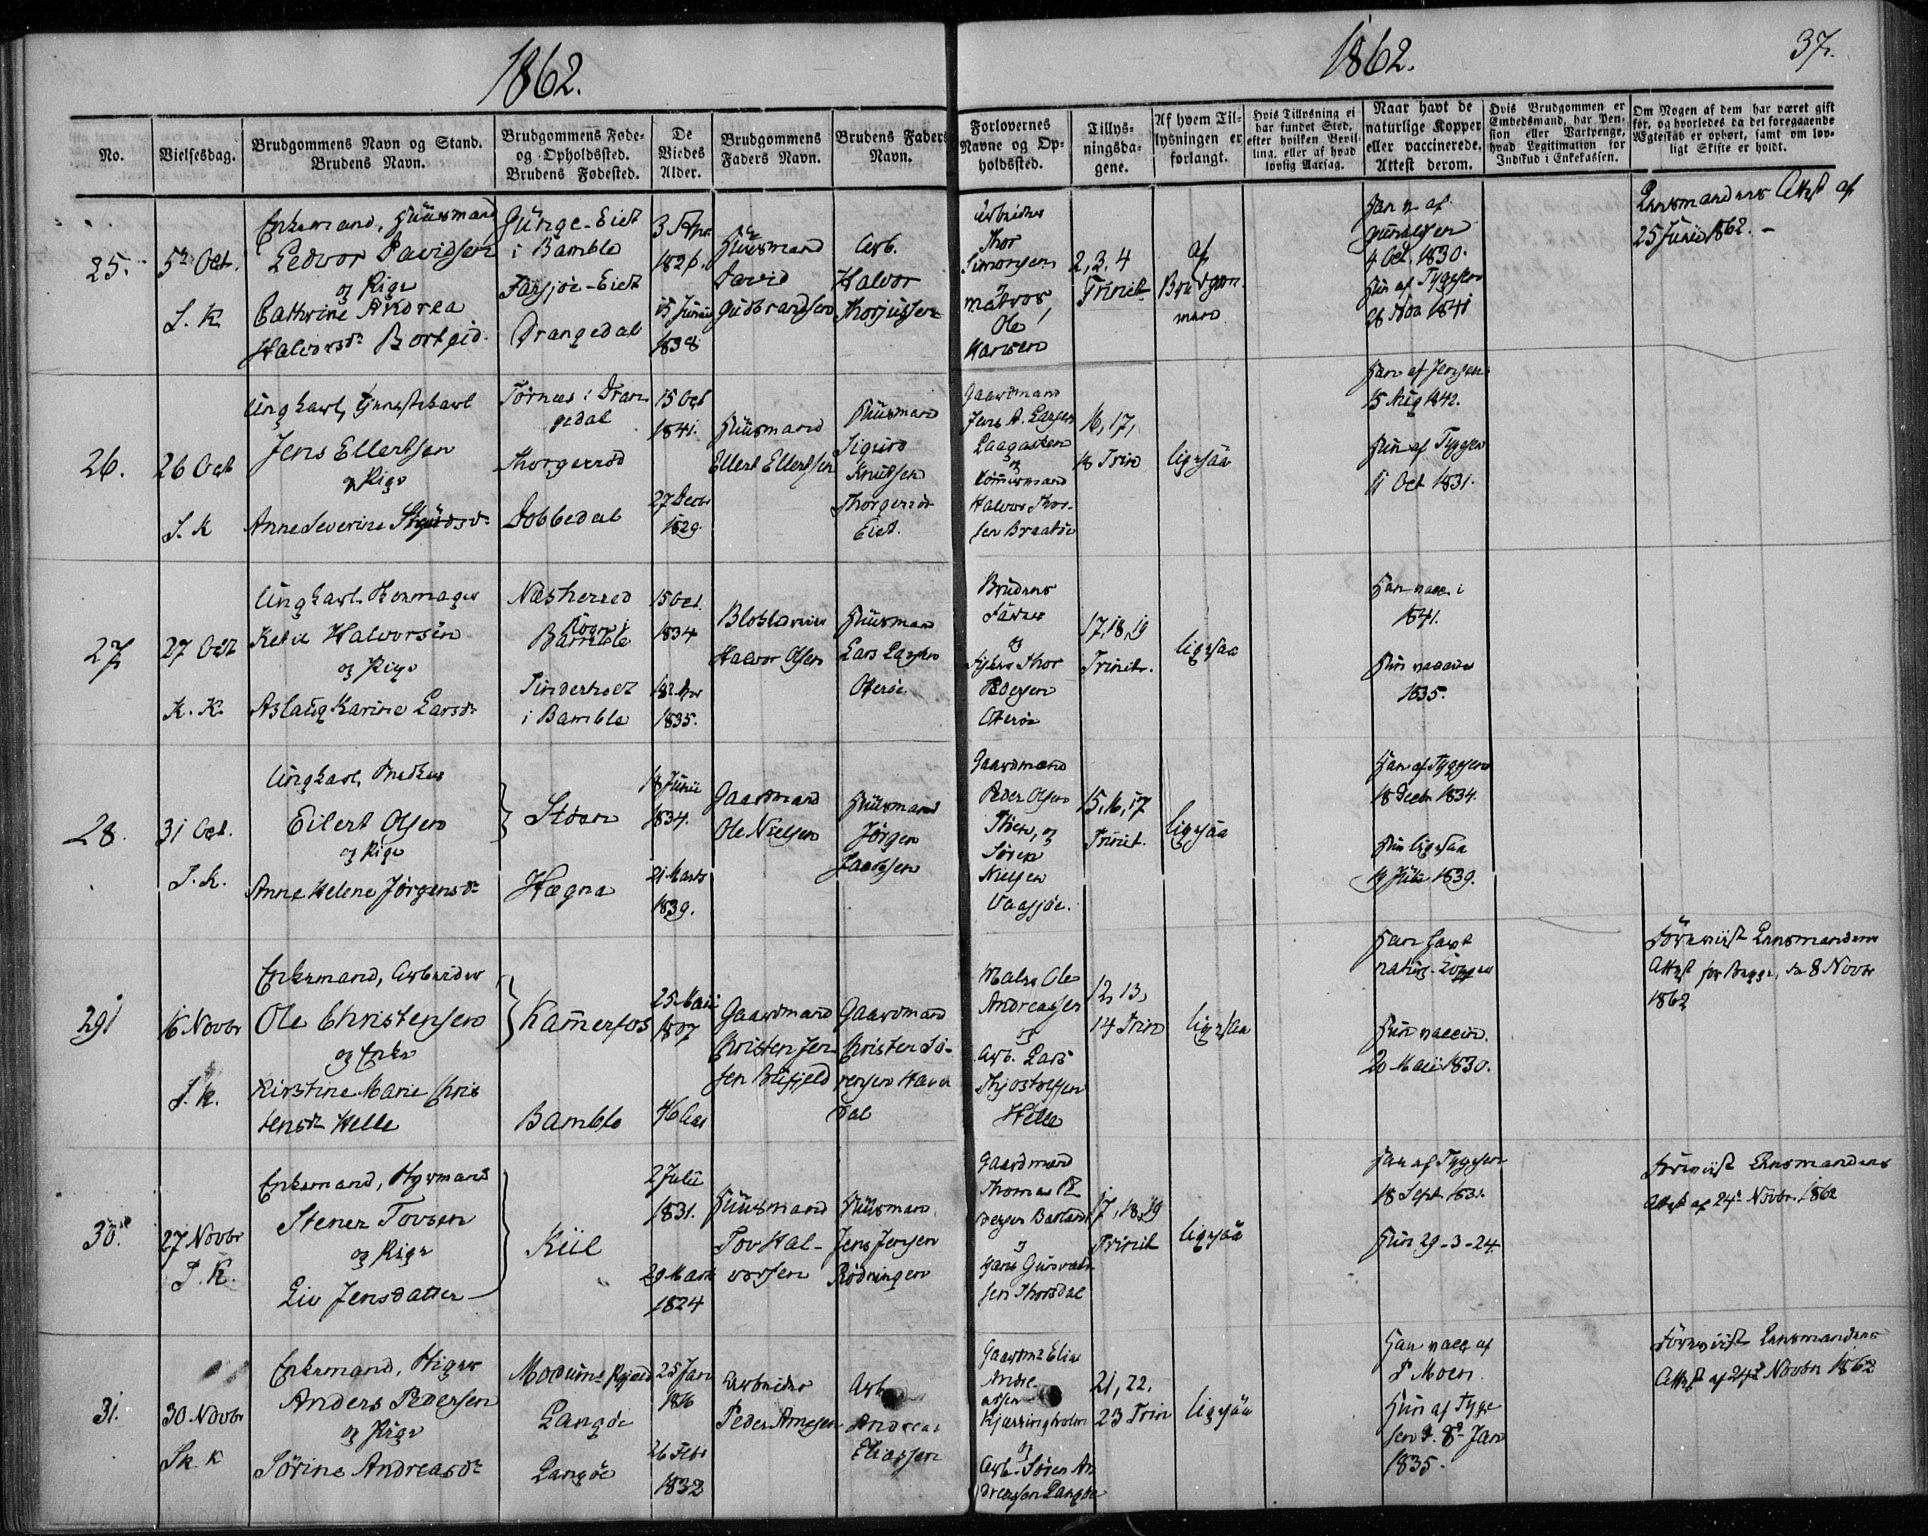 1862.
1862.
37.
No.
Vielsesdag.
Brudgommens Navn og Stand.
Brudens Navn.
Brudgommens Føde-
og Opholdssted.
Brudens Fødested.
De
Viedes
Alder.
Brudgommens
Faders Navn.
Brudens Faders
Navn.
Forlovernes
Navne og Op-
holdssted.
Tillys-
ningsda-
gene.
Af hvem Til-
lysningen er
forlangt.
Hvis Tillysning ei
har fundet Sted,
efter hvilken Bevil-
ling, eller af hvad
lovlig Aarsag.
Naar havt de
naturlige Kopper
eller vaccinerede.
Attest derom.
Hvis Brudgommen er
Embedsmand, har Pen-
sion eller Vartpenge,
hvad Legitimation for
Indskud i Enkekassen.
Om Nogen af dem har været gift
før, og hvorledes da det foregaaende
Ægteskab er ophørt, samt om lov-
ligt Skifte er holdt.
25.
5te Oct.
S. K.
Enkemand, Huusmand
Ledvor Davidsen
og Pige
Cathrine Andrea
Halvorsdr
-Eiet
i Bamble
-Eiet
Drangedal
1826.
15 Junii
1838
Huusmand
David
Gudbrandsen
Arb.
Halvor
Thorjussen
Arbeider
Thor
Simonsen
og
Matros
Ole
Hansen
2, 3, 4
Trinit.
af
Brudgom-
men
Han v. af
4 Oct. 1830.
Hun af Tygesen
26 Nov 1841
Lensmandens Attest af
25 Junii 1862. —
26.
26 Oct
S. K
Ungkarl, Tjenestekarl
Jens Ellertsen
og Pige
Anne Severine
Tørnes i Dran-
gedal
Dobbedal
15 Oct
1841.
27 Decbr
1829.
Huusmand
Ellert Ellertsen
Huusmand
Sigurd
Knutsen
Eiet.
Gaardmand
Jens A. Larsen
og
Halvor Thor-
sen
16, 17,
18 Trin
ligesaa
Han af Jensen
15 Aug 1842.
Hun af Tygesen
11 Oct 1831.
27
27 Oct
K. K.
Ungkarl,
Halvorsen
og Pige
Aslaug Karine Larsdr
Næsherred
Bamble
i Bamble
15 Oct.
1834
1835.
Halvor Olsen
Huusmand
Lars Larsen
Oterøe
Brudens
Fader
og
Thor
Pedersen
Oterøe
17, 18, 19
Trinit.
ligesaa
Han vacc. i
1841.
Hun vaccin
1835.
28.
31 Oct.
S. K.
Ungkarl, Snedker
Eilert Olsen
og Pige
Anne Helene Jørgensdr
Støen
Hægna
18 Junii
1834.
21 Marts
1839.
Gaardmand
Ole Nielsen
Huusmand
Jørgen
Gaardmand
Peder Olsen
Støen, og
Søren
Nielsen
15, 16, 17
Trinit.
ligesaa
Han af Tygesen
18 Decbr 1834.
Hun ligesaa
1839.
29
16 Novbr
S. K.
Enkemand, Arbeider
Ole Christensen
og Enke
Kirstine Marie Chris-
tensdr Helle
Kammerfos
Bamble
25 Maii
1807
46 Aar
Gaardmand
Christen Jen-
sen
Gaardmand
Christen Sø-
rensen
dal
Maler Ole
Andreassen
og
Arb. Lars
Helle
12, 13,
14 Trin
ligesaa
Han havt
naturl. Kopper
Hun vaccin.
20 Maii 1830.
Foreviist Lensmandens
Attest for Begge, den 8 Novbr
1862
30.
27 Novbr
S. K.
Enkemand, Hyrmand
Stener Tovsen
og Pige
Liv Jensdatter
Kiil
2 Julii
1831.
29 Marts
1824
Huusmand
Tov Hal-
vorsen
Huusmand
Jens Jensen
Rødningen
Gaardmand
Thomas Pe-
dersen Barland
og
Hans
sen Thorsdal
17, 18, 19
Trinit
ligesaa
Han af Tygesen
18 Sept. 1831.
Hun 29-3-24
Foreviist Lensmandens
Attest af 24de Novbr. 1862
31.
30 Novbr
Sk. K
Enkemand,
Anders Pedersen
og Pige
Sørine Andreasdr
Langøe
Langøe
25 Jan
1816
26 Febr
1832
Arbeider
Peder Arnesen
Arb.
Andreas
Eliassen
Gaardmd Elias
Andre-
assen
Kjærringholm
og
Arb. Søren An-
dreassen Langøe
21, 22,
23 Trin
ligesaa
Han vacc. af
P Moen.
Hun af Tyge-
sen d. 8de Jan
1835.
Foreviist Lensmandens
Attest af 24de Novbr 1862